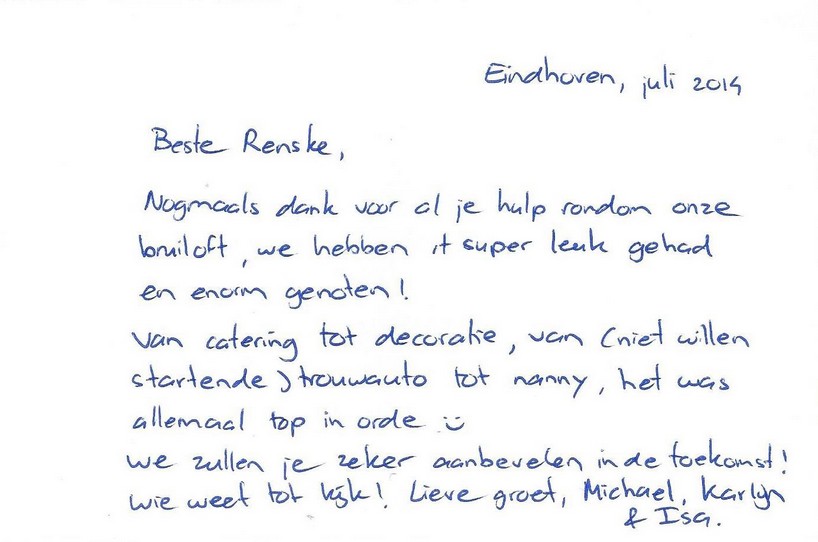 Eindhoven, juli 2014
Beste Renske,
Nogmaals dank voor al je hulp rondom onze
bruiloft, we hebben it super leuk gehad
en enorm genoten!
Van catering tot decoratie, van (niet willen
startende) trouwauto tot nanny, het was
allemaal top in orde :)
We zullen je zeker aanbevelen in de toekomst!
Wie weet tot kijk! Lieve groet, Michael, Karlijn
& Isa.